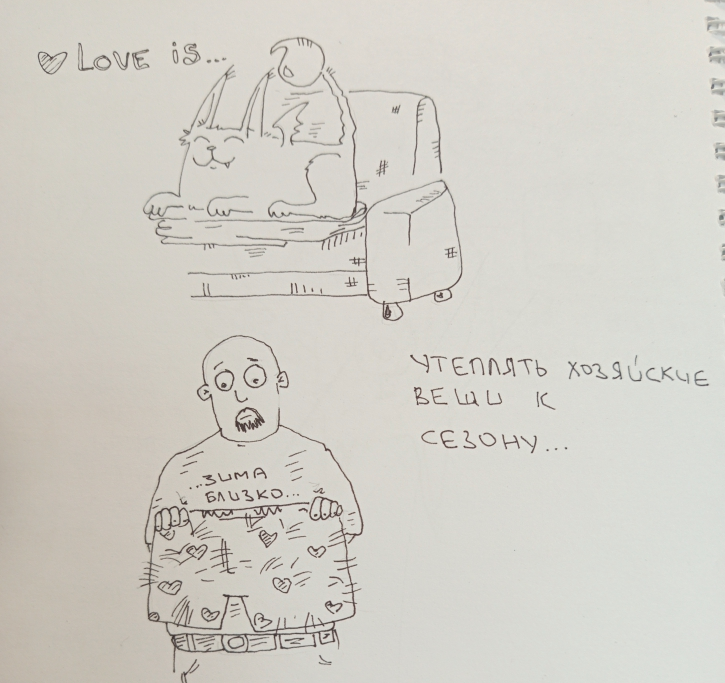 LOVE is...
УТЕПЛЯТЬ ХОЗЯЙСКИЕ
ВЕЩИ К
СЕЗОНУ...
...ЗИМА
БЛИЗКО...